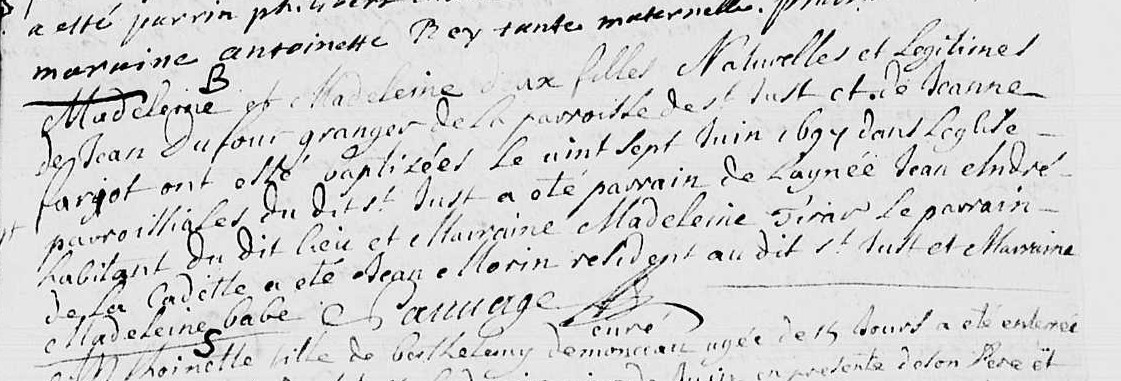 a esté parrin philibert
maraine antoinette Rey tante maternelle.
B
Madeleine et Madeleine deux filles Naturelles et Legitimes
de Jean Dufour granger de la parroisse de st Just et de Jeanne
farjot ont esté baptizées le vint sept Juin 1697 dans Leglise
parroissialles du dit st Just a eté parrain de Laynée Jean André
habitant du dit lieu et Marraine Madeleine Tirar Le parrain
de La Cadette a eté Jean Morin resident au dit st Just et Marraine
Madeleine babe Sauvage
curé
S
thoinette fille de berthelemy demonceau agée de 15 Jours a eté enterrée
de Juin en presente de son Pere et